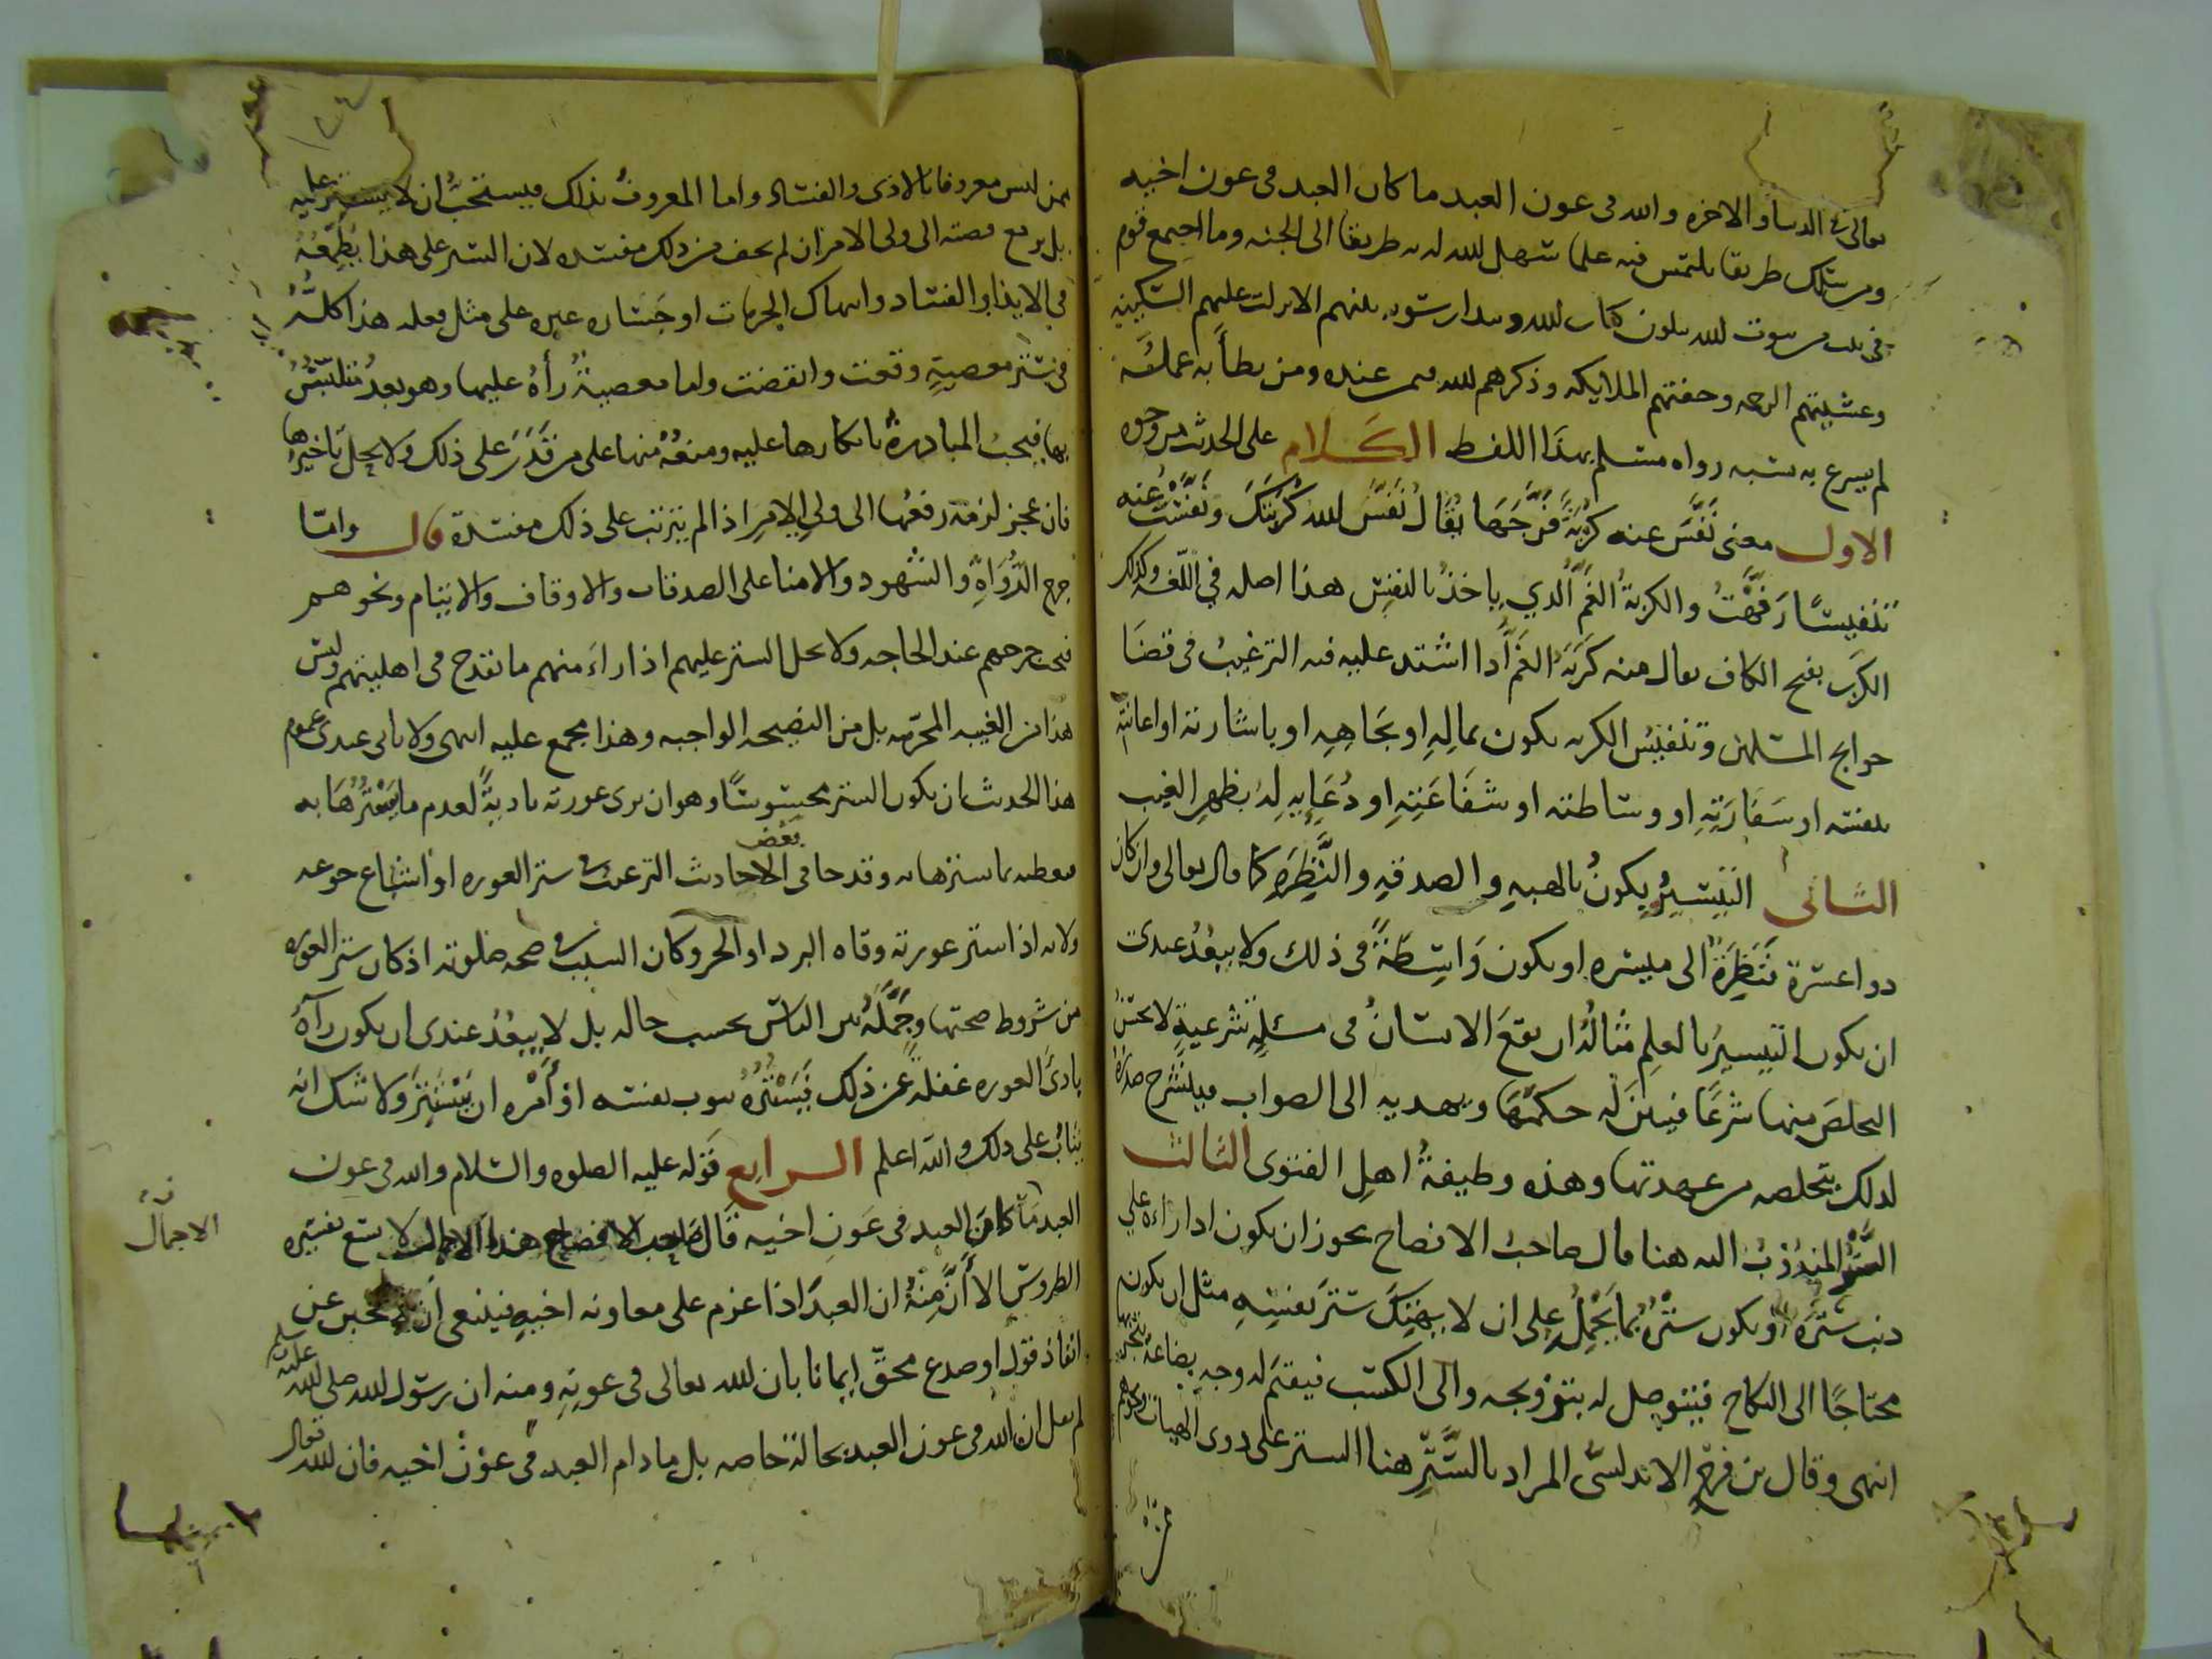 تعالى في الدنيا والاخره والله في عون العبد ما كان العبد في عون اخيه
ومن سلك طريقا يلتمس فيه علما سهل الله له به طريقا الى الجنه وما اجتمع قوم
في بيت من بيوت الله يتلون كتاب الله ويتدارسونه بينهم الا نزلت عليهم السكينه
وغشيتهم الرحمه وحفتهم الملايكه وذكرهم الله فيمن عنده ومن بطأ به عمله
لم يسرع به نسبه رواه مسلم بهذا اللفظ الكلام على الحديث من وجوه
الاول معنى نَفَّسَ عنه كربة فَرَّجَهَا يقال نَفَّسَ الله كُرْبَتَكَ ونَفَّسْتُ عنه
تنفيسًا رَفَّهْتُ والكربةُ الغَمُّ الذي يأخذ بالنفس هذا اصله في اللغه وكذلك
الكرب بفتح الكاف يقال منه كَرَبَهُ الغَمُّ اذا اشتد عليه فيه الترغيب في قضا
حوايج المسلمين وتنفيس الكربه يكون بمالِهِ او بجاهِهِ او باشارته او اعانته
بنفسه او سَفَارَتِهِ او وساطته او شفاعَتِهِ او دُعَايِهِ له بظهرِ الغيب
الثانى التيسيرُ يكونُ بالهبهِ والصدقهِ والنَّظِرَهِ كما قال تعالى وان كان
ذوا عسرة فَنَظِرَةٌ الى ميسره او يكون وَاسِطَةً في ذلك ولا يبعُدُ عندى
ان يكون التيسيرُ بالعلمِ مثالُهُ ان يقعَ الانسانُ في مسئلةٍ شرعيةٍ لا يحسن
التخلصَ منها شرعًا فيبين له حكمَهَا ويهديه الى الصواب فينشرح صدره
لذلك بتخلصه من عهدتها وهذه وظيفةُ اهلِ الفتوى الثالث
السَّتْرُ المندُوبُ اليه هنا قال صاحبُ الافصاح يجوز ان يكون اذا راءه على
ذنب سَتَرَه او يكون سَتْرُه بما يَحْمِلُه على ان لا يهتِكَ سَتْرَ نفسِهِ مثل ان يكون
محتاجًا الى النكاح فيتوصل له بتزويجه والى الكسب فيقيم له وجه بضاعة يتجر فيها
انتهى وقال بن فرحٍ الاندلسيُّ المراد بالسَّتْرِ هنا الستر على ذوى الهيات ونحوهم
ممن ليس معروفا بالاذى والفساد واما المعروفُ بذلك فيستحبُّ ان لا يسترَ عليه
بل يرفع قصته الى ولى الامر ان لم يخف من ذلك مفسده لان الستر على هذا يُطمعُهُ
في الايذا والفساد وانتهاك الحرمات او جَسَاره غيره على مثل فعله هذا كلُّهُ
في سَتْرِ معصيةٍ وقعت وانقضت واما معصيةٌ رأهُ عليها وهو بعدُ متلبّسٌ
بها فيجبُ المبادرةُ بانكارها عليه ومنعُهُ منها على من قَدَرَ على ذلك ولا يحل تاخيرها
فان عجز لزمه رفعُها الى ولي الامرِ اذا لم يترتب على ذلك مفسدة قال واما
جرح الرُّوَاهِ والشهود والامنا على الصدقات والاوقاف والايتام ونحوهم
فيجب جرحهم عند الحاجه ولا يحل الستر عليهم اذا راءَ منهم ما يقدح في اهليتهم وليس
هذا من الغيبه المحرّمه بل من النصيحه الواجبه وهذا مجمع عليه انتهى ولا يابى عندى عموم
هذا الحديث ان يكون الستر محسوسًا وهو ان يرى عورته باديةً لعدم ما يَسْتُرُهَا به
فيعطيه ما يسترها به وقد جا في بعض الاحاديث الترغيب في ستر العوره او اشباع جوعه
ولانه اذا ستر عورته وقاه البرد او الحر وكان السبب في صحه صلوته اذ كان ستر العوره
من شروط صحتها وجَمَّلَهُ بين الناس بحسب حاله بل لا يبعُدُ عندى ان يكون رآهُ
بادىَ العوره غفلةً عن ذلك فَيَسْتُرُهُ بثوب نفسه او أَمَرَه ان يَسْتَتِرَ ولا شك انه
يثابُ على ذلك والله اعلم الرابع قوله عليه الصلوه والسلام والله في عون
العبد ما كان العبد في عَونِ اخيه قال صاحب الافصاح هذا الاجمال لا يسع تفسيره
الاجمال
الطروس الا أَنَّ مِنْهُ ان العبدَ اذا عزم على معاونه اخيهِ فينبغى أن لا يجبن عن
انفاذ قول او صدع بحقٍّ ايمانا بان الله تعالى في عونِهِ ومنه ان رسول الله صلى الله عليه وسلم
لم يقل ان الله في عون العبد بحالة خاصه بل ما دام العبد في عوْن اخيه فان الله تعالى